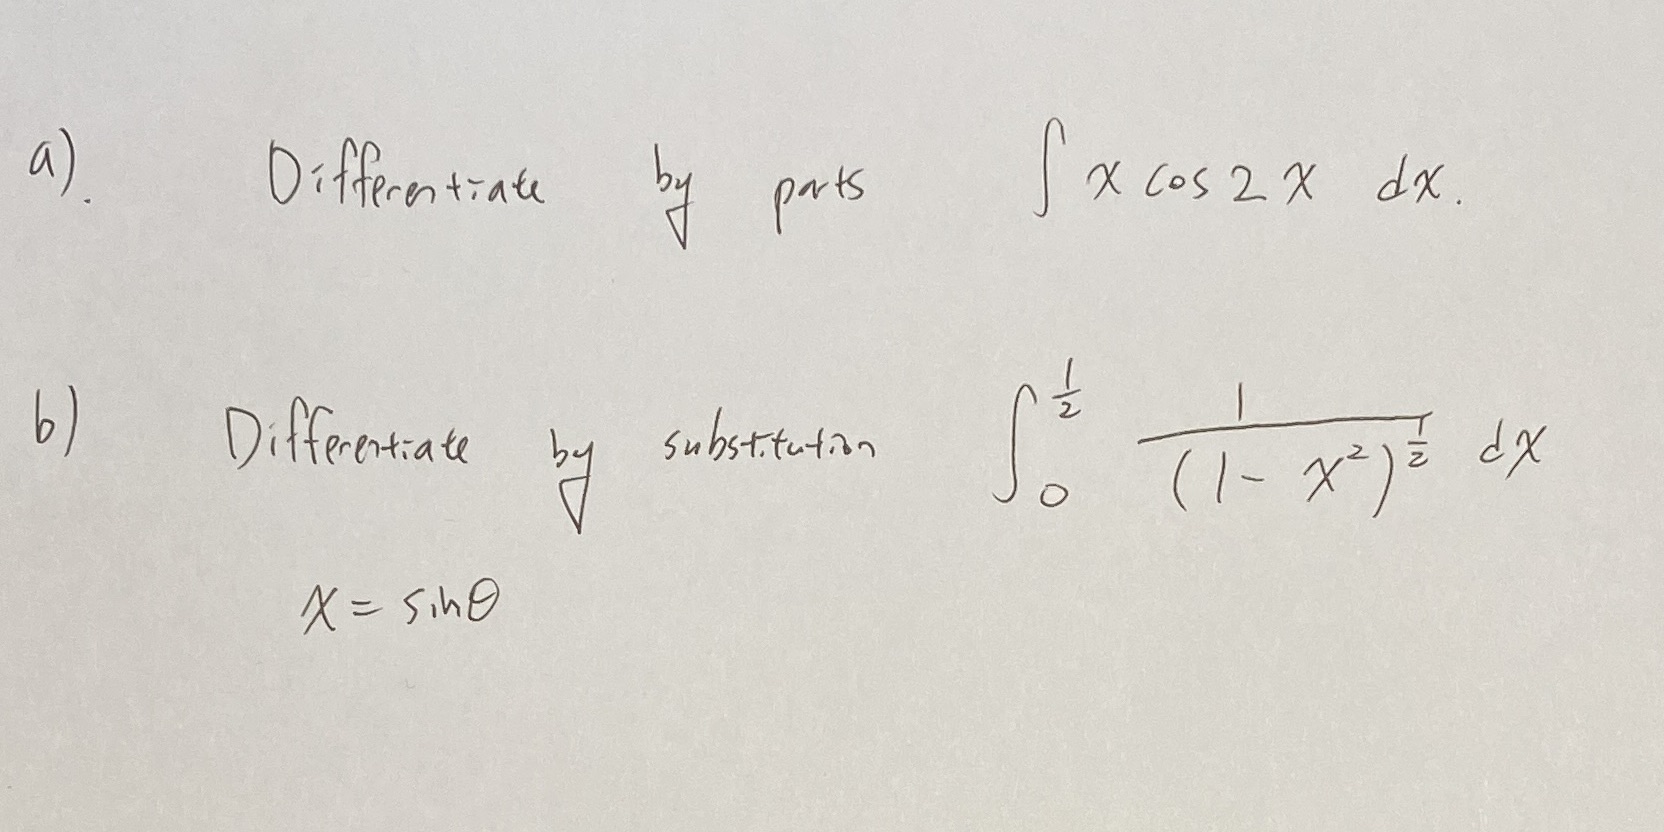 a). Differentiate by parts ∫ x cos 2x dx.
b) Differentiate by substitution ∫₀^(1/2) 1/(1 - x²)^(1/2) dx
x = sinθ